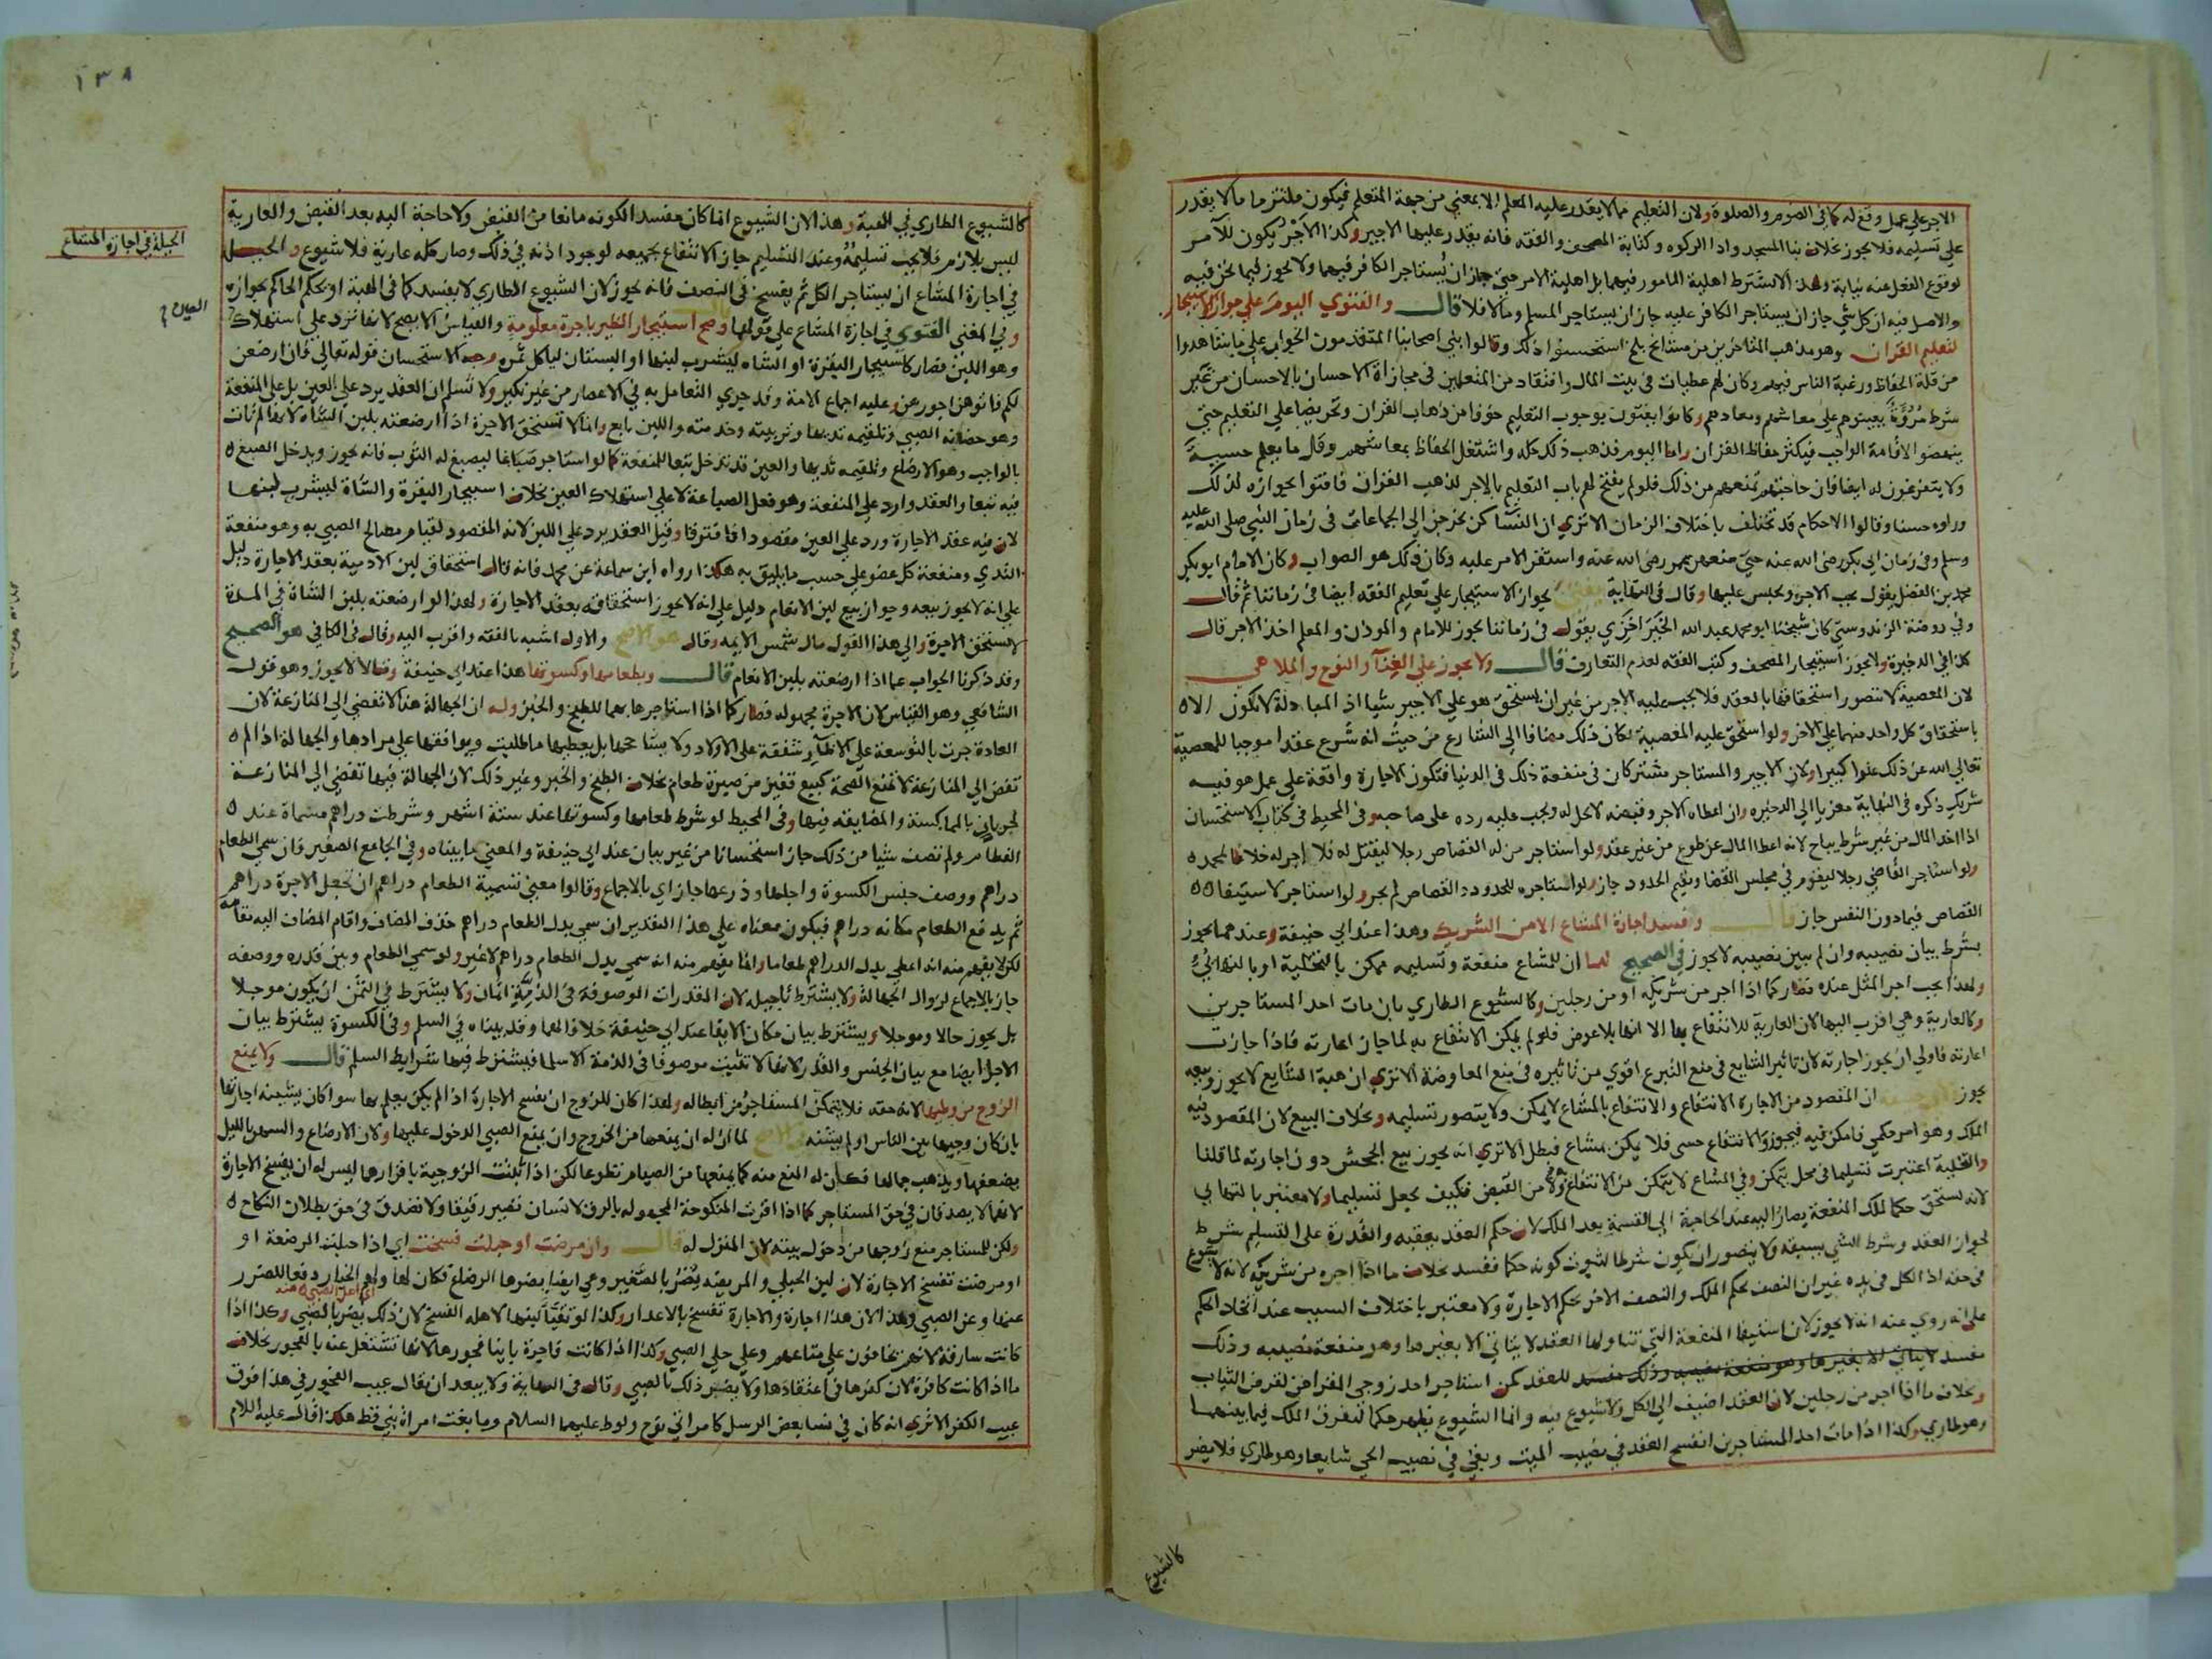 الاجر علي عمل وقع له كما في الصوم والصلوة ولان التعليم مما لا يقدر عليه المعلم الا بمعني من جهة المتعلم فيكون ملتزما ما لا يقدر
علي تسليمه فلا يجوز بخلاف بنا المسجد واداء الزكوه وكتابة المصحف والفقه فانه يقدر عليها الاجير وكذا الاجر يكون للآمر
لوقوع الفعل عنه نيابة ولهذا لا تشترط اهلية المامور فيهما بل اهلية الامر حتي جاز ان يستاجر الكافر فيهما ولا يجوز فيما نحن فيه
والاصل فيه ان كل شي جاز ان يستاجر الكافر عليه جاز ان يستاجر المسلم وما لا فلا قال والفتوي اليوم علي جواز الاستيجار
لتعليم القران وهو مذهب المتاخرين من مشايخ بلخ استحسنوا ذلك وقالوا بني اصحابنا المتقدمون الجواب علي ما شاهدوا
من قلة الحفاظ ورغبة الناس فيهم وكان لهم عطيات في بيت المال وافتقاد من المتعلمين في مجازاة الاحسان بالاحسان من غير
شرط مروة يعينوهم علي معاشهم ومعادهم وكانوا يفتون بوجوب التعليم خوفا من ذهاب القران وتحريضا علي التعليم حتي
ينهضوا لاقامة الواجب فيكثر حفاظ القران واما اليوم فذهب ذلك كله واشتغل الحفاظ بمعاشهم وقل ما يعلم حسبة
ولا يتفرغون له ايضا فان حاجتهم تمنعهم من ذلك فلو لم يفتح لهم باب التعليم بالاجر لذهب القران فافتوا بجوازه لذلك
وراوه حسنا وقالوا الاحكام قد تختلف باختلاف الزمان الا تري ان النسا كن يخرجن الي الجماعات في زمان النبي صلي الله عليه
وسلم وفي زمان ابي بكر رضي الله عنه حتي منعهن عمر رضي الله عنه واستقر الامر عليه وكان ذلك هو الصواب وكان الامام ابو بكر
محمد بن الفضل يقول يجب الاجر ويحبس عليها وقال في النهاية يفتي بجواز الاستيجار علي تعليم الفقه ايضا في زماننا ثم قال
وفي روضة الزندوستي كان شيخنا ابو محمد عبد الله الخيزاخزي يقول في زماننا يجوز للامام والموذن والمعلم اخذ الاجر قال
كذا في الذخيرة ولا يجوز استيجار المصحف وكتب الفقه لعدم التعارف قال ولا يجوز علي الغناء والنوح والملاهي
لان المعصية لا يتصور استحقاقها بالعقد فلا يجب عليه الاجر من غير ان يستحق هو علي الاجير شيا اذ المبادلة لا تكون الا
باستحقاق كل واحد منهما علي الاخر ولو استحق عليه المعصية لكان ذلك مضافا الي الشارع من حيث انه شرع عقدا موجبا للمعصية
تعالي الله عن ذلك علوا كبيرا ولان الاجير والمستاجر مشتركان في منفعة ذلك في الدنيا فتكون الاجارة واقعة علي عمل هو فيه
شريك ذكره في النهاية معزيا الي الذخيره وان اعطاه الاجر وقبضه لا يحل له ويجب عليه رده علي صاحبه وفي المحيط في كتاب الاستحسان
اذا اخذ المال من غير شرط يباح لانه اعطا المال عن طوع من غير عقد ولو استاجر من له القصاص رجلا ليقتل له فلا اجر له خلافا لمحمد
ولو استاجر القاضي رجلا ليقوم في مجلس القضا ويقيم الحدود جاز ولو استاجره للحدود والقصاص لم يجز ولو استاجر لاستيفا
القصاص فيما دون النفس جاز قال وفسد اجارة المشاع الا من الشريك وهذا عند ابي حنيفة وعندهما يجوز
بشرط بيان نصيبه وان لم يبين نصيبه لا يجوز في الصحيح لهما ان للمشاع منفعة وتسليمه ممكن بالتخلية او بالتهايئ
ولهذا يجب اجر المثل عنده فصار كما اذا اجر من شريكه او من رجلين وكالشيوع الطاري بان مات احد المستاجرين
وكالعارية وهي اقرب اليها لان العارية للانتفاع بها الا انها بلا عوض فلو لم يمكن الانتفاع به لما جاز اعارته فاذا جازت
اعارته فاولي ان يجوز اجارته لان تاثير الشايع في منع التبرع اقوي من تاثيره في منع المعاوضة الا تري ان هبة الشايع لا يجوز وبيعه
يجوز ولابي حنيفة ان المقصود من الاجارة الانتفاع والانتفاع بالمشاع لا يمكن ولا يتصور تسليمه وبخلاف البيع لان المقصود فيه
الملك وهو امر حكمي فامكن فيه فيجوز والانتفاع حسي فلا يمكن بمشاع فبطل الا تري انه يجوز بيع الجحش دون اجارته لما قلنا
والتخلية اعتبرت تسليما في محل يتمكن وفي المشاع لا يتمكن من الانتفاع ولا من القبض فكيف يجعل تسليما ولا معتبر بالتهايي
لانه يستحق حكما لملك المنفعة يصار اليه عند الحاجة الي القسمة بعد الملك لان حكم العقد يعقبه والقدرة علي التسليم شرط
لجواز العقد وشرط الشي يسبقه ولا يتصور ان يكون شرطا لثبوت كونه حكما ففسد بخلاف ما اذا اجره من شريكه لانه لا شيوع
في حقه اذ الكل في يده غير ان النصف بحكم الملك والنصف الاخر بحكم الاجارة ولا معتبر باختلاف السبب عند اتحاد الحكم
علي انه روي عنه انه لا يجوز لان استيفا المنفعة التي تناولها العقد لا يتاتي الا بغيرها وهو منفعة نصيبه وذلك
مفسد للعقد كمن استاجر احد زوجي المقراض لقرض الثياب
وبخلاف ما اذا اجر من رجلين لان العقد اضيف الي الكل ولا شيوع فيه وانما الشيوع يظهر حكما لتفرق الملك فيما بينهما
وهو طاري وكذا اذا مات احد المستاجرين انفسخ العقد في نصيب الميت وبقي في نصيب الحي شايعا وهو طاري فلا يضر
كالشيوع
١٣٨
كالشيوع الطاري في الهبة وهذا لان الشيوع انما كان مفسدا لكونه مانعا من القبض ولا حاجة اليه بعد القبض والعارية
ليس بلازم فلا يجب تسليمه وعند التسليم جاز الانتفاع بجميعه لوجود اذنه في ذلك وصار كله عارية فلا شيوع والحيلة
في اجارة المشاع ان يستاجر الكل ثم يفسخ في النصف فانه يجوز لان الشيوع الطاري لا يفسد كما في الهبة او يحكم الحاكم بجوازه
وفي المغني الفتوي في اجارة المشاع علي قولهما قال وصح استيجار الظير باجرة معلومة والقياس الا يصح لانها ترد علي استهلاك
وهو اللبن فصار كاستيجار البقرة او الشاه ليشرب لبنها او البستان لياكل ثمره وجه الاستحسان قوله تعالي فان ارضعن
لكم فاتوهن اجورهن وعليه اجماع الامة وقد جري التعامل به في الاعصار من غير نكير ولا نسلم ان العقد يرد علي العين بل علي المنفعة
وهو حضانة الصبي وتلقيمه ثديها وتربيته وخدمته واللبن تابع وانما لا تستحق الاجرة اذا ارضعته بلبن الشاه لانها لم تات
بالواجب وهو الارضاع وتلقيمه ثديها والعين قد تدخل تبعا للمنفعة كما لو استاجر صباغا ليصبغ له الثوب فانه يجوز ويدخل الصبغ
فيه تبعا والعقد وارد علي المنفعة وهو فعل الصباغة لا علي استهلاك العين بخلاف استيجار البقرة والشاة ليشرب لبنها
لان فيه عقد الاجارة ورد علي العين مقصودا فافترقا وقيل العقد يرد علي اللبن لانه المقصود لقيام مصالح الصبي به وهو منفعة
الثدي ومنفعة كل عضو علي حسب ما يليق به هكذا رواه ابن سماعة عن محمد فانه قال استحقاق لبن الادمية بعقد الاجارة دليل
علي انه لا يجوز بيعه وجواز بيع لبن الانعام دليل علي انه لا يجوز استحقاقه بعقد الاجارة ولهذا لو ارضعته بلبن الشاة في المدة
لا تستحق الاجرة والي هذا القول مال شمس الايمه وقال هو الاصح والاول اشبه بالفقه واقرب اليه وقال في الكافي هو الصحيح
وقد ذكرنا الجواب عما اذا ارضعته بلبن الانعام قال وبطعامها وكسوتها هذا عند ابي حنيفة وقالا لا يجوز وهو قول
الشافعي وهو القياس لان الاجرة مجهوله فصار كما اذا استاجرها بهما للطبخ والخبز وله ان الجهالة هنا لا تفضي الي المنازعة لان
العادة جرت بالتوسعة علي الاظآر شفقة علي الاولاد ولا يشاحها بل يعطيها ما طلبت ويوافقها علي مرادها والجهالة اذا لم
تفض الي المنازعة لا تمنع الصحة كبيع قفيز من صبرة طعام بخلاف الطبخ والخبز وغير ذلك لان الجهالة فيها تفضي الي المنازعة
لجريان المماكسة والمضايقه فيها وفي المحيط لو شرط طعامها وكسوتها عند ستة اشهر وشرطت دراهم مسماة عند
الفطام ولم تصف شيا من ذلك جاز استحسانا من غير بيان عند ابي حنيفة والمعني ما بيناه وفي الجامع الصغير فان سمي الطعام
دراهم ووصف جنس الكسوة واجلها وذرعها جاز اي بالاجماع وقالوا معني تسمية الطعام دراهم ان تجعل الاجرة دراهم
ثم يدفع الطعام مكانه دراهم فيكون معناه علي هذا التقدير ان سمي بدل الطعام دراهم حذف المضاف واقام المضاف اليه مقامه
لكن لا يفهم منه انه اعطي بدل الدراهم طعاما وانما يفهم منه انه سمي بدل الطعام دراهم لا غير ولو سمي الطعام وبين قدره ووصفه
جاز بالاجماع لزوال الجهالة ولا يشترط تاجيله لان المقدرات الموصوفة في الذمة اثمان ولا يشترط في الثمن ان يكون موجلا
بل يجوز حالا وموجلا ويشترط بيان مكان الايفا عند ابي حنيفة خلافا لهما وقد بيناه في السلم وفي الكسوة يشترط بيان
الاجل ايضا مع بيان الجنس والقدر لانها لا تثبت موصوفا في الذمة الا سلما فيشترط فيها شرايط السلم قال ولا يمنع
الزوج من وطيها لانه حقه فلا يتمكن المستاجر من ابطاله ولهذا كان للزوج ان يفسخ الاجارة اذا لم يكن يعلم بها سوا كان يشينه اجارتها
بان كان وجيها بين الناس او لم يشنه في الاصح لما ان له ان يمنعها من الخروج وان يمنع الصبي الدخول عليها ولان الارضاع والسهر بالليل
يضعفها ويذهب جمالها فكان له المنع منه كما يمنعها من الصيام تطوعا لكن اذا ثبت الزوجية باقرارها ليس له ان يفسخ الاجارة
لانهما لا يصدقان في حق المستاجر كما اذا اقرت المنكوحة المجهوله بالرق لانسان تصير رقيقا ولا تصدق في حق بطلان النكاح
ولكن للمستاجر منع زوجها من دخول بيته لان المنزل له قال وان مرضت او حبلت فسخت اي اذا حبلت المرضعة او
او مرضت تفسخ الاجارة لان لبن الحبلي والمريضه يضر بالصغير وهي ايضا يضرها الرضاع فكان لها ولهم الخيار دفعا للضرر
اي لاهل الصبي منه
عنها وعن الصبي وهذا لان هذا اجارة والاجارة تفسخ بالاعذار وكذا لو تقيأ لبنها لاهله الفسخ لان ذلك يضر بالصبي وكذا اذا
كانت سارقة لانهم يخافون علي متاعهم وعلي حلي الصبي وكذا اذا كانت فاجرة بائنا فجورها لانها تشتغل عنه بالفجور بخلاف
ما اذا كانت كافرة لان كفرها في اعتقادها ولا يضر ذلك بالصبي وقال في النهاية ولا يبعد ان يقال عيب الفجور في هذا فوق
عيب الكفر الا تري انه كان في نسا بعض الرسل كامراتي نوح ولوط عليهما السلام وما بغت امراة نبي قط هكذا قال عليه السلام
الحيلة في اجازة المشاع
العين